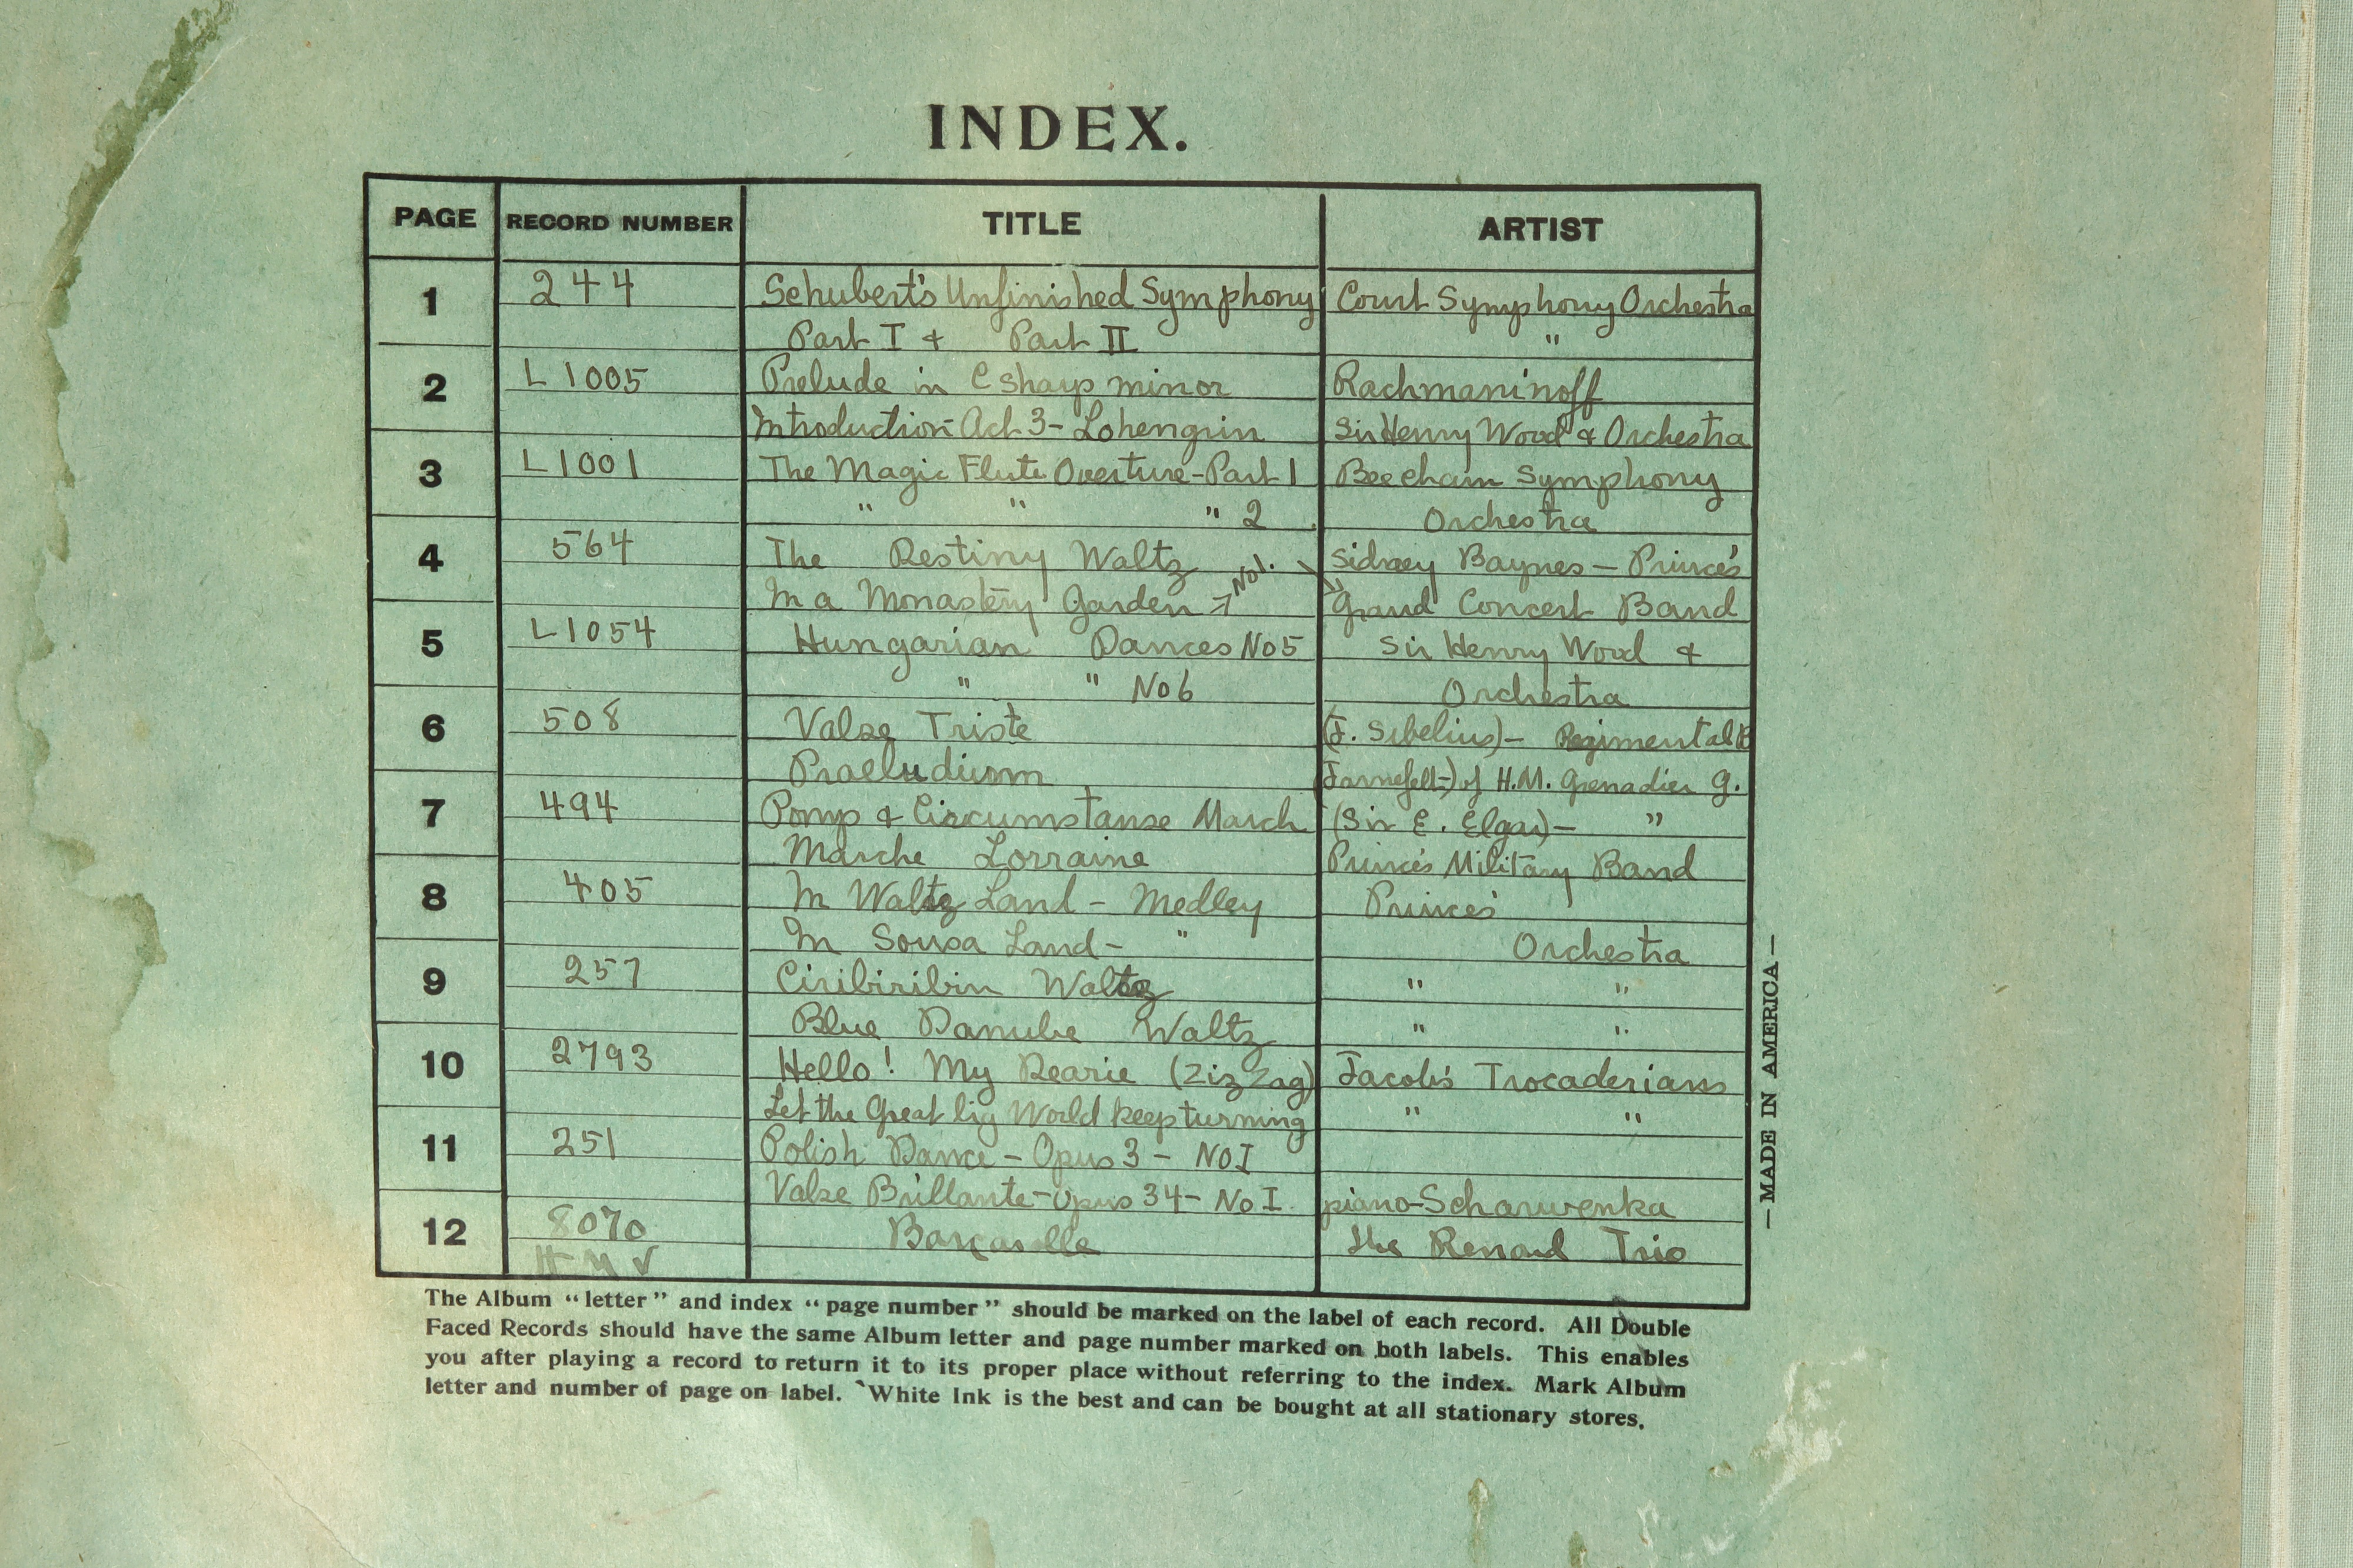 INDEX.
PAGE RECORD NUMBER TITLE ARTIST
1 244 Schubert's Unfinished Symphony Court Symphony Orchestra
Part I & Part II "
2 L1005 Prelude in C sharp minor Rachmaninoff
Introduction Act 3 - Lohengrin Sir Henry Wood & Orchestra
3 L1001 The Magic Flute Overture - Part 1 Beecham Symphony
" " " 2 Orchestra
4 564 The Destiny Waltz Sidney Baynes - Prince's
In a Monastery Garden No1. Grand Concert Band
5 L1054 Hungarian Dances No 5 Sir Henry Wood &
" " No 6 Orchestra
6 508 Valse Triste (J. Sibelius) - Regimental B
Praeludium (Jarnefelt-) of H.M. Grenadier G.
7 494 Pomp & Circumstanse March (Sir E. Elgar) - "
Marche Lorraine Prince's Military Band
8 405 In Waltz Land - Medley Prince's
In Sousa Land - " Orchestra
9 257 Ciribiribin Waltz " "
Blue Danube Waltz " "
10 2793 Hello! My Dearie (Ziz Zag) Jacob's Trocaderians
Let the Great big World keep turning " "
11 251 Polish Dance - Opus 3 - No I
Valse Brillante - Opus 34 - No I. piano - Scharwenka
12 8070 Barcarolle The Renard Trio
H M V
— MADE IN AMERICA —
The Album "letter" and index "page number" should be marked on the label of each record. All Double
Faced Records should have the same Album letter and page number marked on both labels. This enables
you after playing a record to return it to its proper place without referring to the index. Mark Album
letter and number of page on label. White Ink is the best and can be bought at all stationary stores.